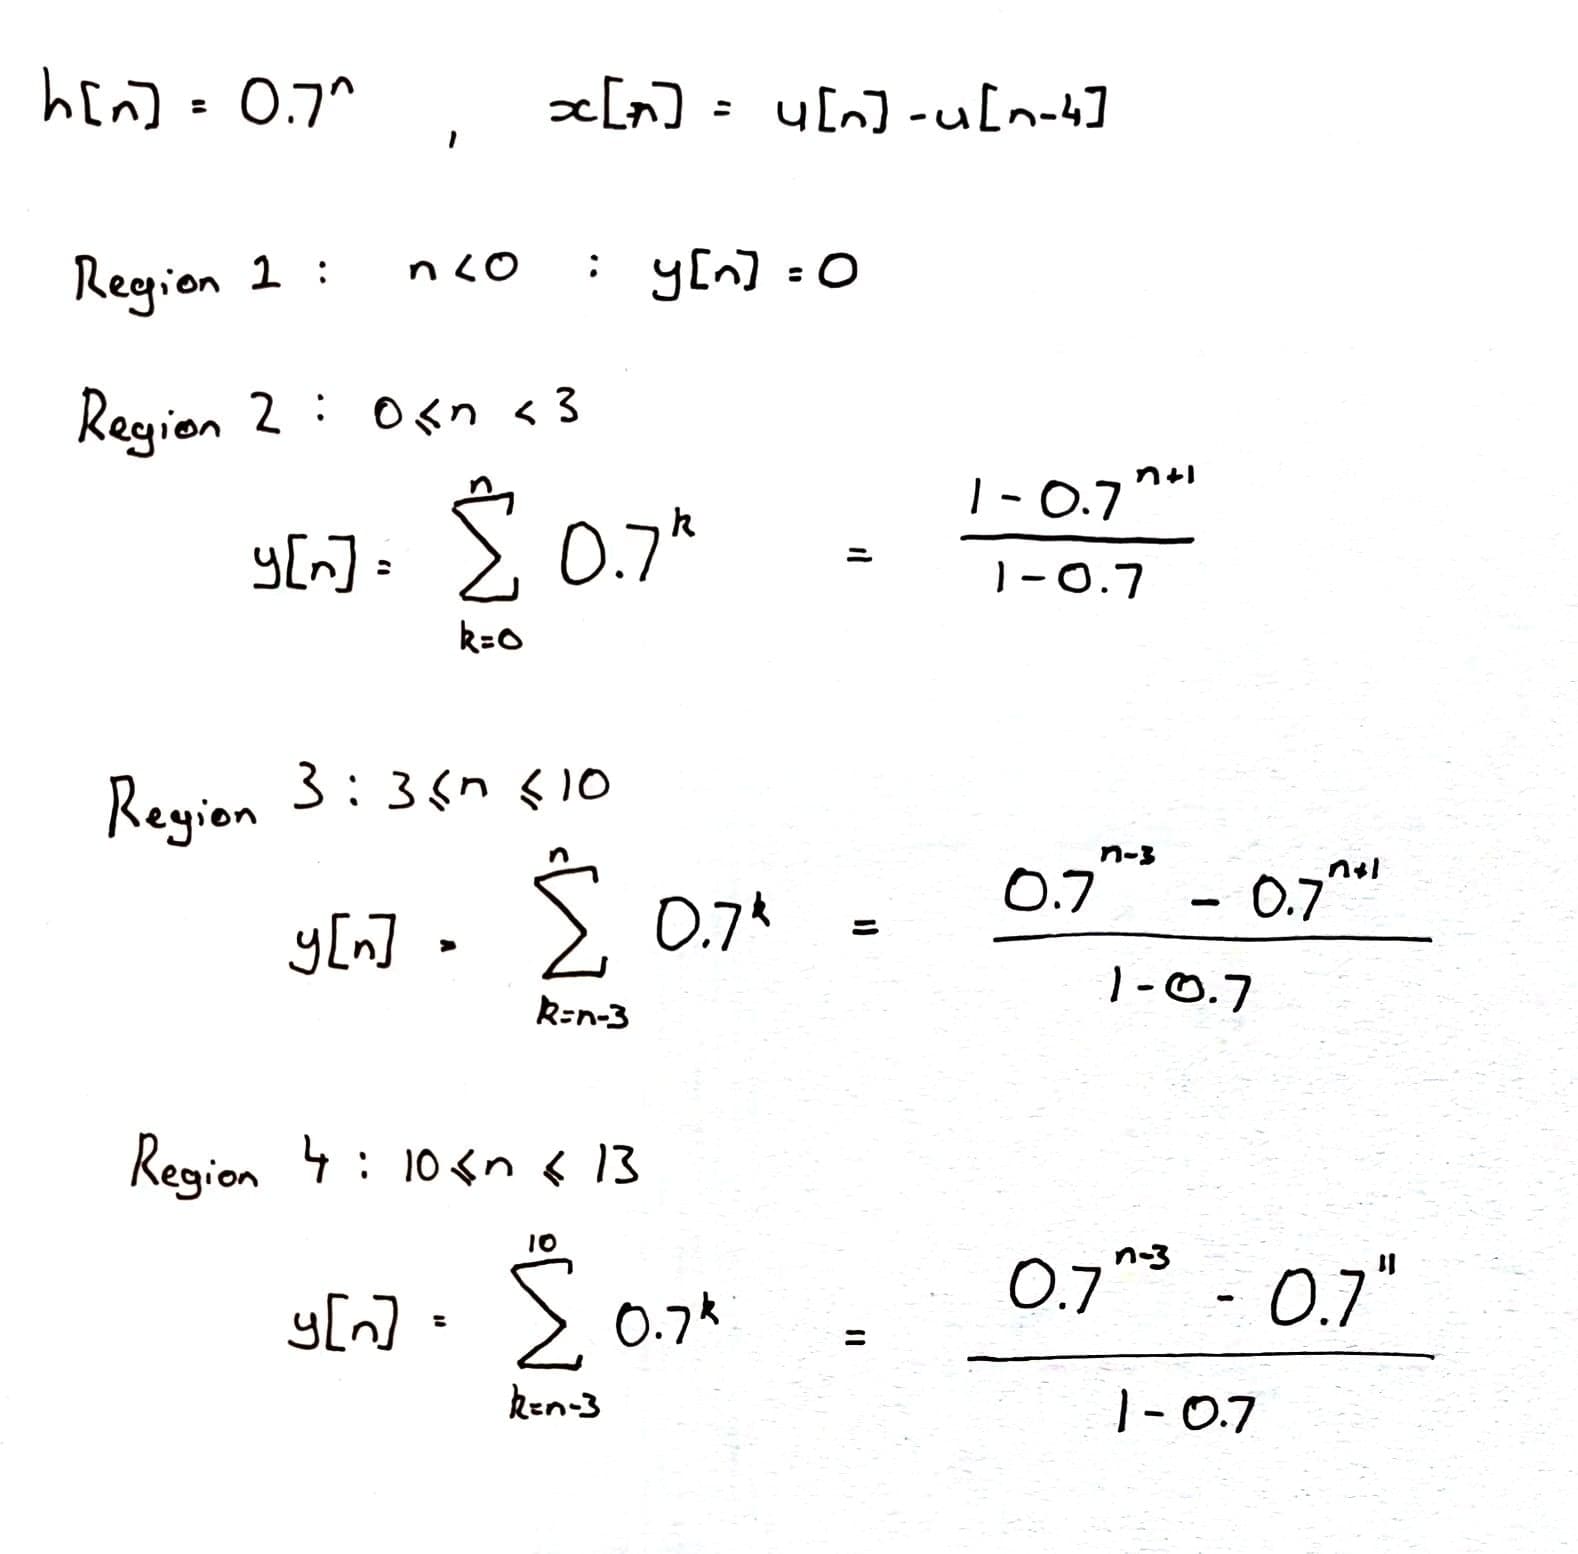 h[n] = 0.7^n , x[n] = u[n] - u[n-4]
Region 1 : n < 0 : y[n] = 0
Region 2 : 0 ≤ n < 3
y[n] = \sum_{k=0}^{n} 0.7^k = \frac{1 - 0.7^{n+1}}{1 - 0.7}
Region 3 : 3 ≤ n ≤ 10
y[n] = \sum_{k=n-3}^{n} 0.7^k = \frac{0.7^{n-3} - 0.7^{n+1}}{1 - 0.7}
Region 4 : 10 ≤ n ≤ 13
y[n] = \sum_{k=n-3}^{10} 0.7^k = \frac{0.7^{n-3} - 0.7^{11}}{1 - 0.7}